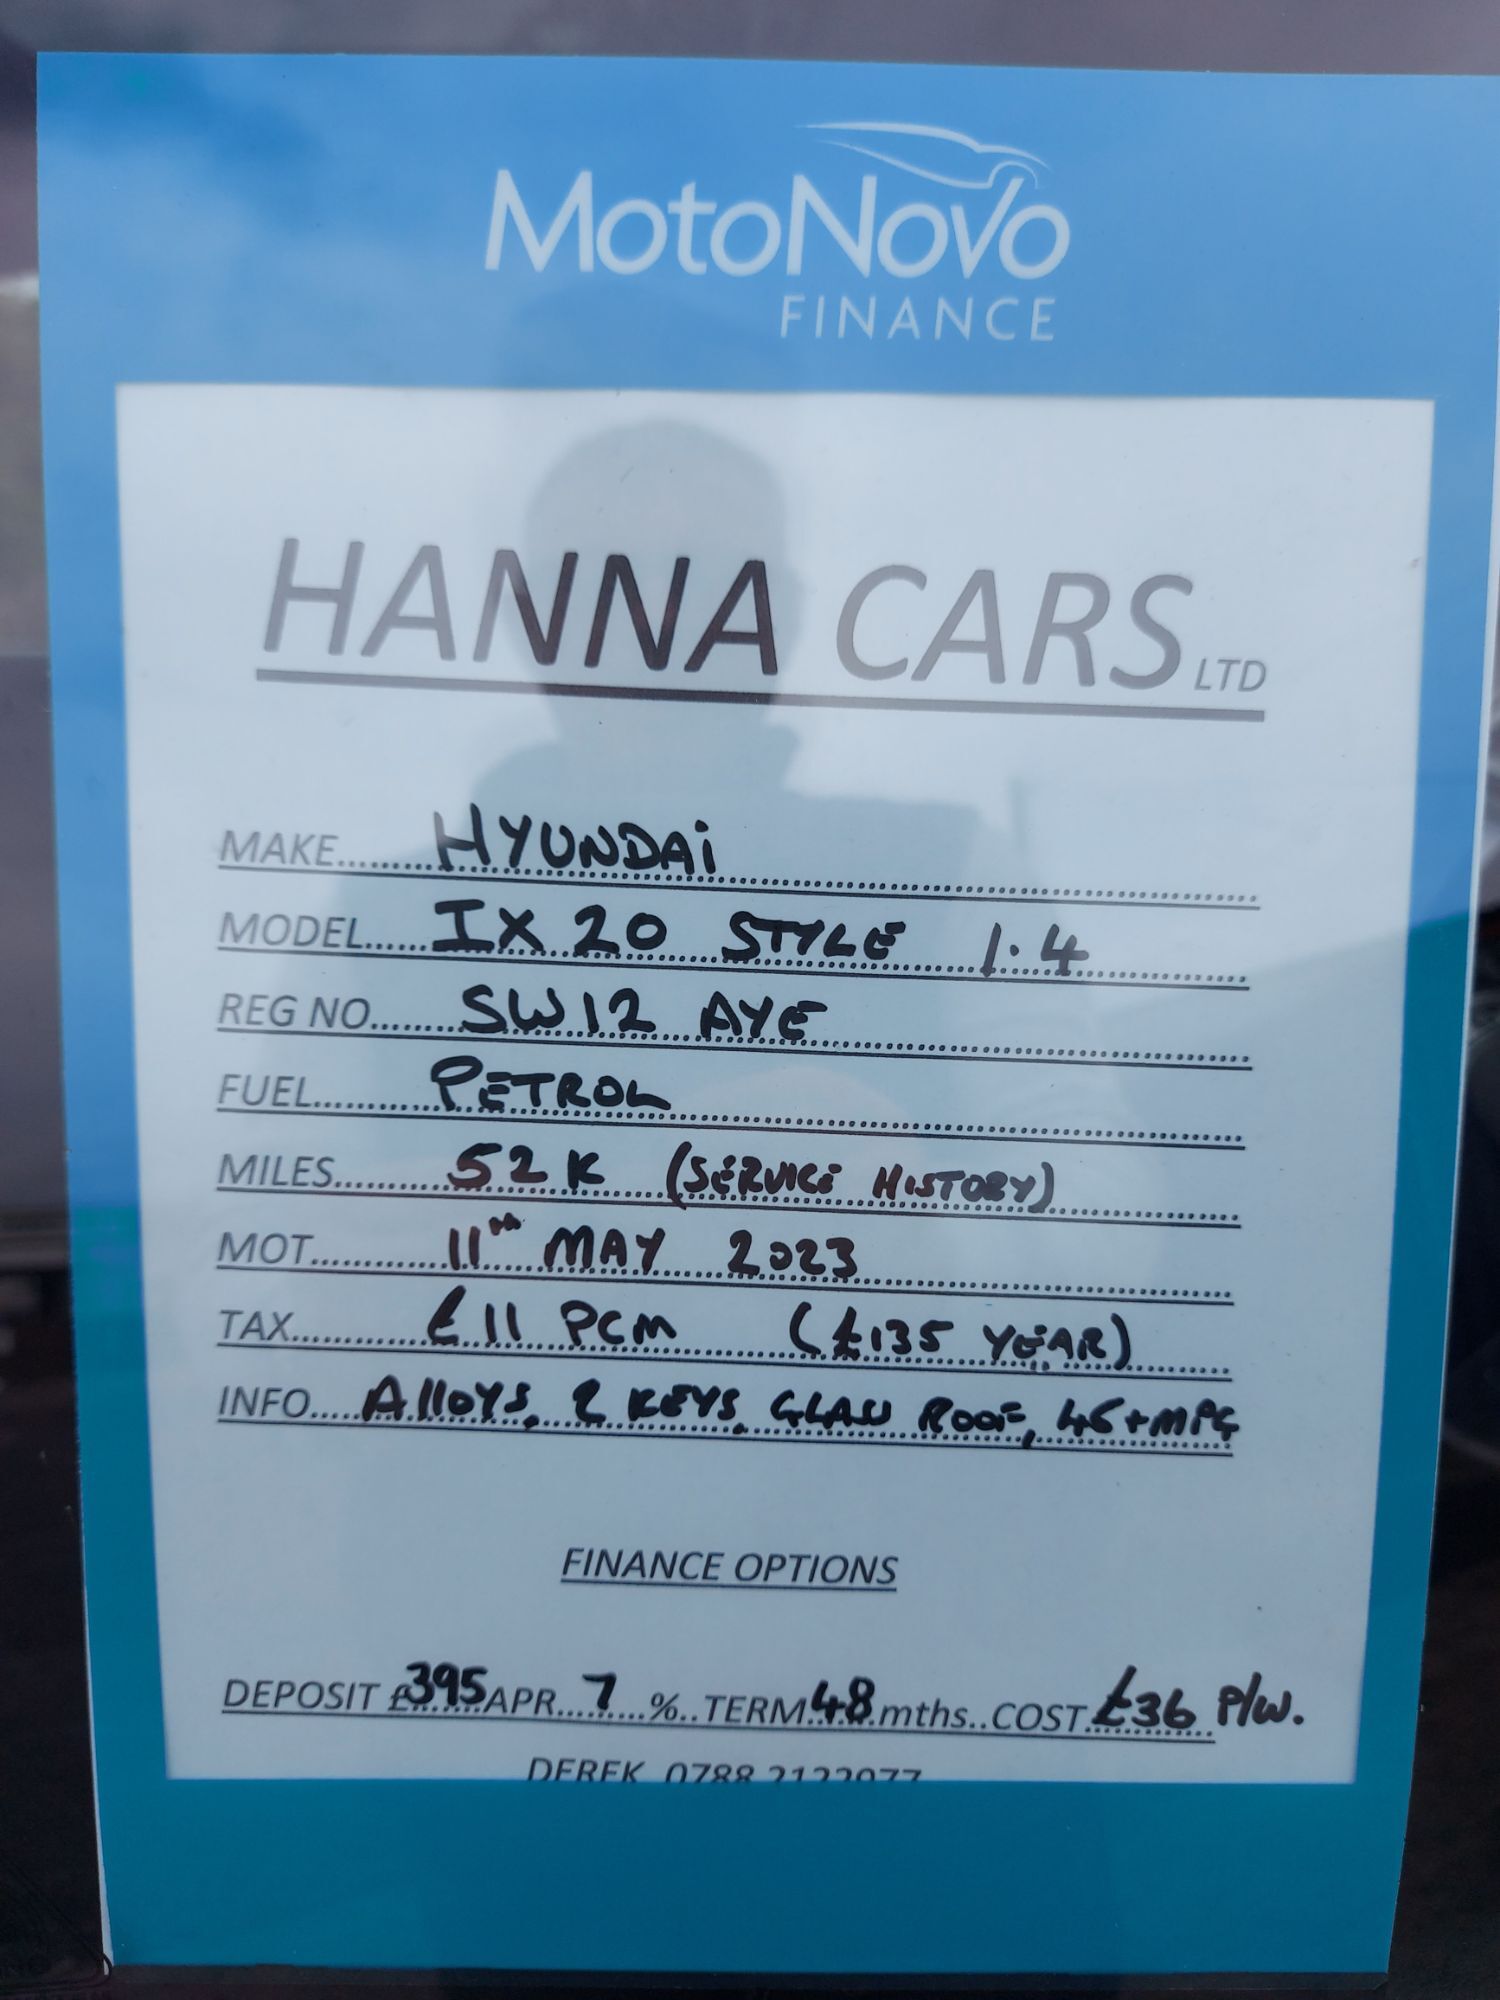 MotoNovo
FINANCE
HANNA CARS LTD
MAKE......HYUNDAi
MODEL......IX 20 STYLE 1.4
REG NO......SW12 AYE
FUEL......PETROL
MILES......52K (SERVICE HISTORY)
MOT......11TH MAY 2023
TAX......£11 PCM (£135 YEAR)
INFO.....Alloys, 2 KEYS, GLASS ROOF, 45+MPG
FINANCE OPTIONS
DEPOSIT £395 APR....7....%..TERM 48 mths..COST £36 P/W.
DEREK 0788 2122977